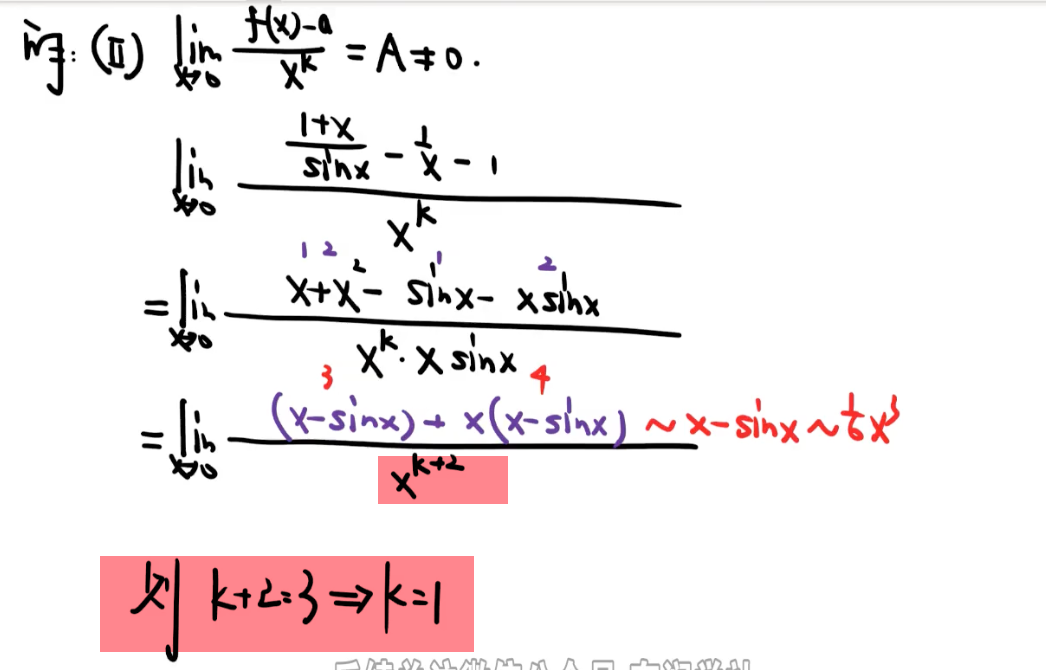 解: (Ⅱ) lim x→0 (f(x)-a)/x^k = A ≠ 0.
lim x→0 ((1+x)/sinx - 1/x - 1)/x^k
1 2 1 2
= lim x→0 (x+x² - sinx - x sinx)/(x^k · x sinx)
3 4
= lim x→0 ((x-sinx) + x(x-sinx))/x^(k+2) ~ x-sinx ~ 1/6 x³
则 k+2=3 ⇒ k=1